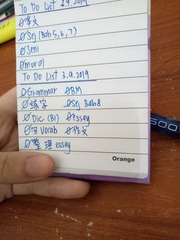 To Do List 2.9.2019
华文
Sej (Bab 5, 6, 7)
Seni
moral
To Do List 3.9.2019
Grammar BM
练字 Sej Bab 8
Dic (BI) Essay
旧 Vocab 作文
整理 essay
Orange